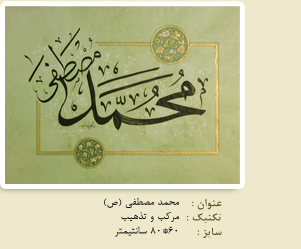 محمد مصطفی
عنوان : محمد مصطفی (ص)
تکنیک : مرکب و تذهیب
سایز : ۶۰*۸۰ سانتیمتر